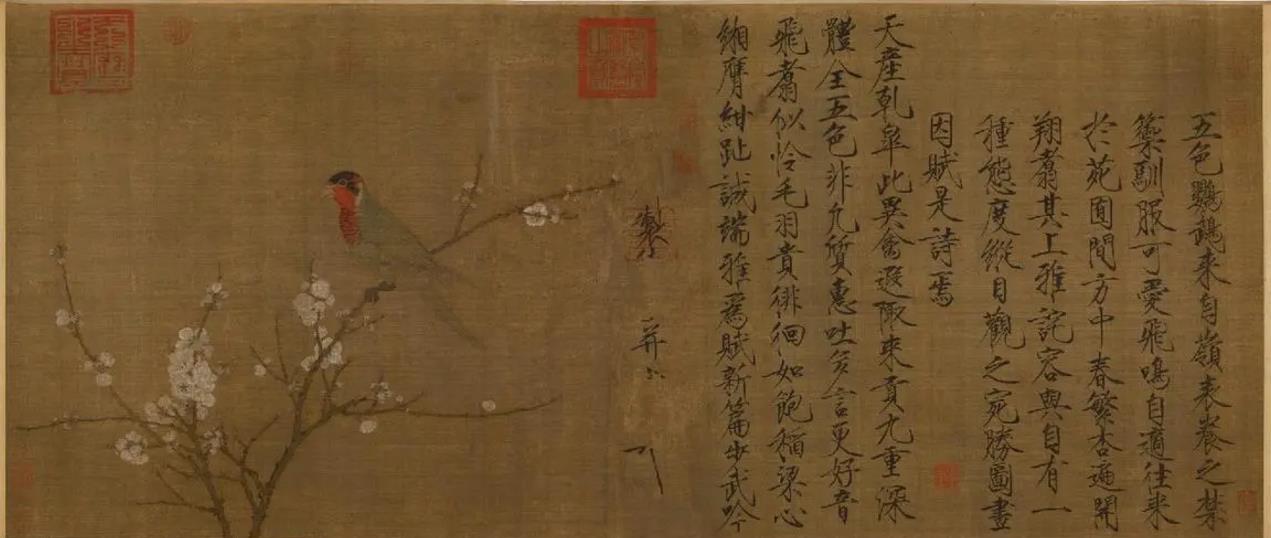 五色鸚鵡來自嶺表養之禁
籞馴服可愛飛鳴自適往來
於苑囿間方中春繁杏遍開
翔翥其上雅詫容與自有一
種態度縱目觀之宛勝圖畫
因賦是詩焉
天產乾皋此異禽遐陬來貢九重深
體全五色非凡質惠吐多言更好音
飛翥似怜毛羽貴徘徊如飽稻粱心
緗膺紺趾誠端雅為賦新篇步武吟
製
并